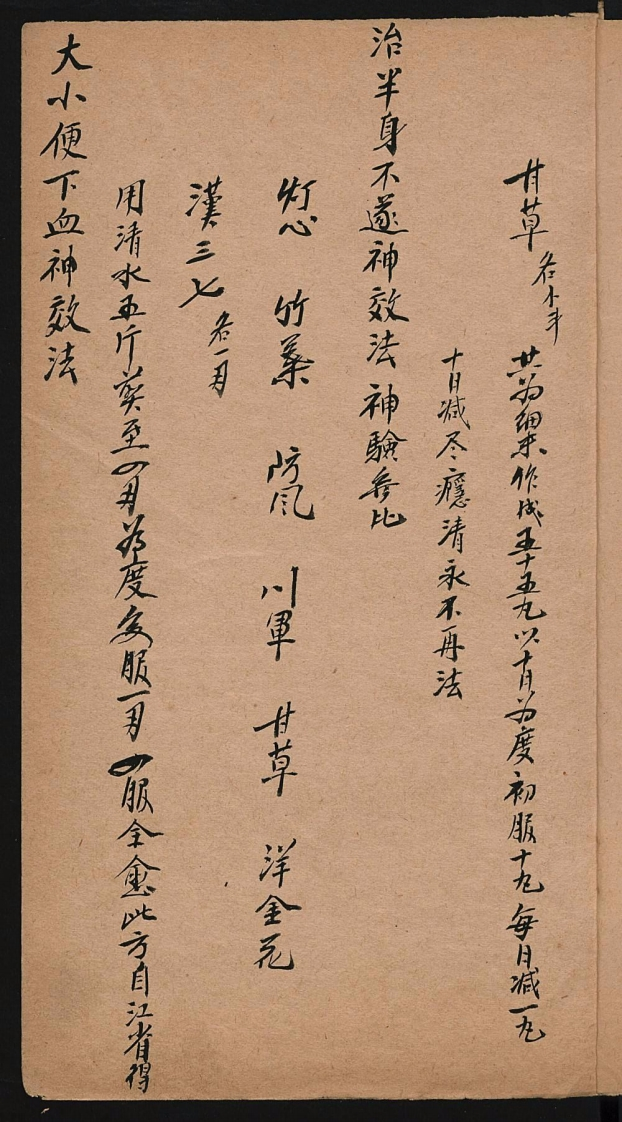 甘草 各小半
共为细末作成五十五丸以十日为度初服十丸每日减一丸
十日减尽瘾清永不再法
治半身不遂神效法 神驗無比
灯心 竹葉 防风 川軍 甘草 洋金花
漢三七 各一刄
用清水五斤煎至四刄为度每服一刄四服全愈此方自江省得
大小便下血神效法